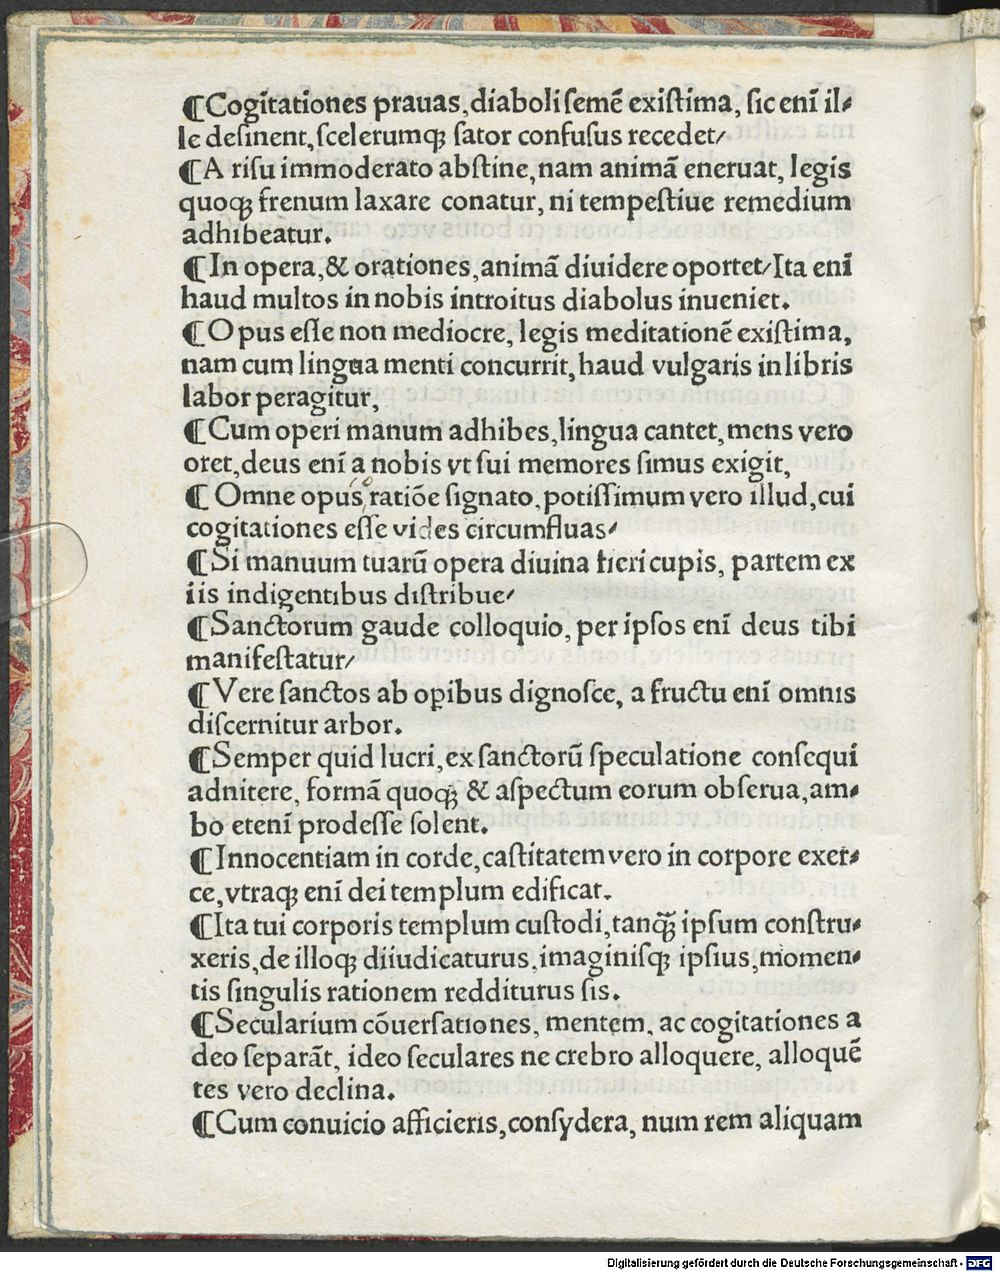 ¶Cogĩtationes prauas,diaboli ſemẽ exiſtima, ſic enĩ il⸗
le deſinent,ſcelerumqꝫ ſator confuſus recedet/
¶A riſu immoderato abſtine,nam animã eneruat, legis
quoqꝫ frenum laxare conatur, ni tempeſtiue remedium
adhibeatur.
¶In opera,& orationes,animã diuidere oportet/Ita enĩ
haud multos in nobis introitus diabolus inueniet.
¶Opus eſſe non mediocre, legis meditationẽ exiſtima,
nam cum lingua menti concurrit,haud vulgaris in libris
labor peragitur,
¶Cum operi manum adhibes,lingua cantet,mens vero
oret,deus enĩ a nobis vt ſui memores ſimus exigit,
¶ Omne opus ratiõe ſignato,potiſſimum vero illud,cui
cogitationes eſſe vides circumfluas/
¶Si manuum tuarũ opera diuina fieri cupis, partem ex
iis indigentibus diſtribue/
¶Sanctorum gaude colloquio,per ipſos enĩ deus tibi
manifeſtatur/
¶Vere ſanctos ab oꝑibus dignoſce, a fructu enĩ omnis
diſcernitur arbor.
¶Semper quid lucri,ex ſanctorũ ſpeculatione conſequi
adnitere, formã quoqꝫ & aſpectum eorum obſerua,am⸗
bo etenĩ prodeſſe ſolent.
¶Innocentiam in corde,caſtitatem vero in corpore exer⸗
ce,vtraqꝫ enĩ dei templum edificat.
¶Ita tui corporis templum cuſtodi,tanqꝫ̃ ipſum conſtru⸗
xeris,de illoqꝫ diiudicaturus,imaginiſqꝫ ipſius,momen⸗
tis ſingulis rationem redditurus ſis.
¶Secularium cõuerſationes, mentem, ac cogitationes a
deo ſeparãt, ideo ſeculares ne crebro alloquere, alloquẽ
tes vero declina.
¶Cum conuicio afficieris,conſydera, num rem aliquam
Digitalisierung gefördert durch die Deutsche Forschungsgemeinschaft - DFG